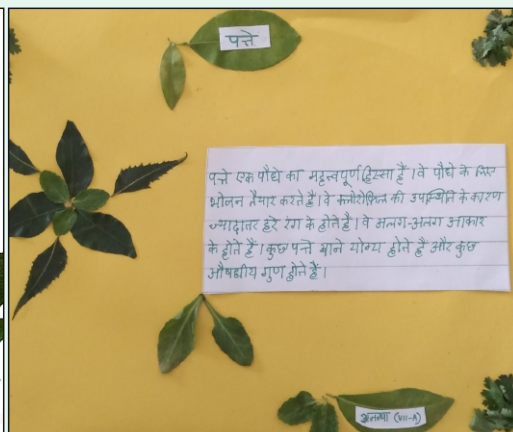 पत्ते
पत्ते एक पौधे का महत्त्वपूर्ण हिस्सा हैं। वे पौधे के लिए
भोजन तैयार करते हैं। वे क्लोरोफिल की उपस्थिति के कारण
ज्यादातर हरे रंग के होते हैं। वे अलग-अलग आकार
के होते हैं। कुछ पत्ते खाने योग्य होते हैं और कुछ
औषधीय गुण होते हैं।
अनन्या (VII-A)